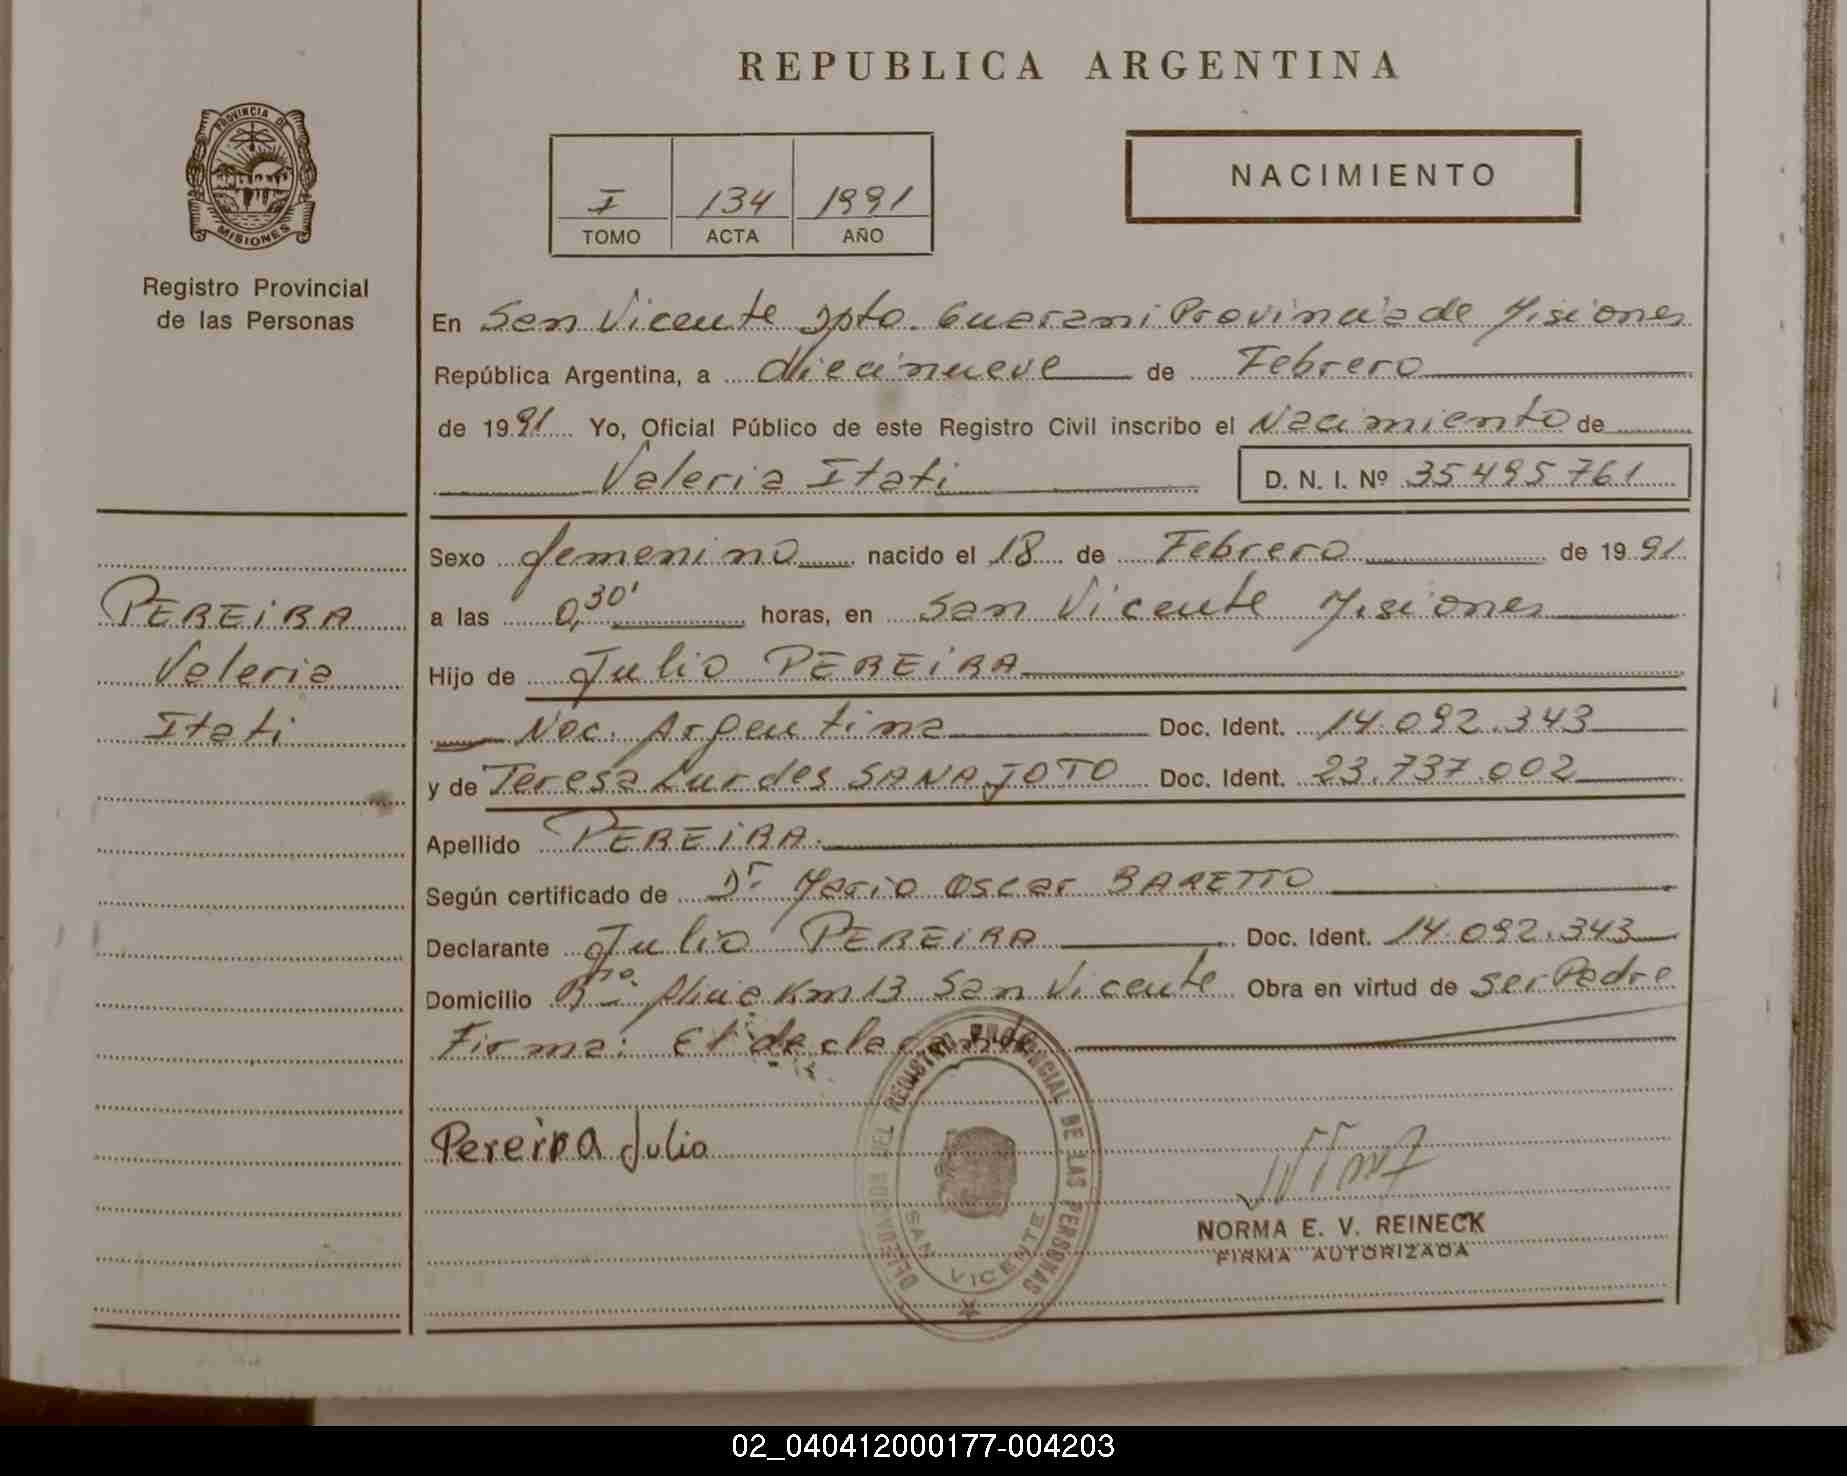 REPUBLICA ARGENTINA
PROVINCIA DE
MISIONES
Registro Provincial
de las Personas
I 134 1991
TOMO ACTA AÑO
NACIMIENTO
En San Vicente Dpto. Guarani Provincia de Misiones
República Argentina, a diecinueve de Febrero
de 1991 Yo, Oficial Público de este Registro Civil inscribo el Nacimiento de
Valeria Itati D. N. I. Nº 35495761
Sexo femenino nacido el 18 de Febrero de 1991
a las 0,30' horas, en San Vicente Misiones
Hijo de Julio PEREiRA
Nac. Argentina Doc. Ident. 14.092.343
y de Teresa Lurdes SANAJOTO Doc. Ident. 23.737.002
Apellido PEREiRA.
Según certificado de Dr. Mario Oscar BARETTO
Declarante Julio PEREiRA Doc. Ident. 14.092.343
Domicilio Km 13 San Vicente Obra en virtud de ser Padre
Firma: El declarante
Pereira Julio
PEREiRA
Valeria
Itati
DELEGACION DEL REGISTRO PROVINCIAL DE LAS PERSONAS
SAN VICENTE
NORMA E. V. REINECK
FIRMA AUTORIZADA
02_040412000177-004203